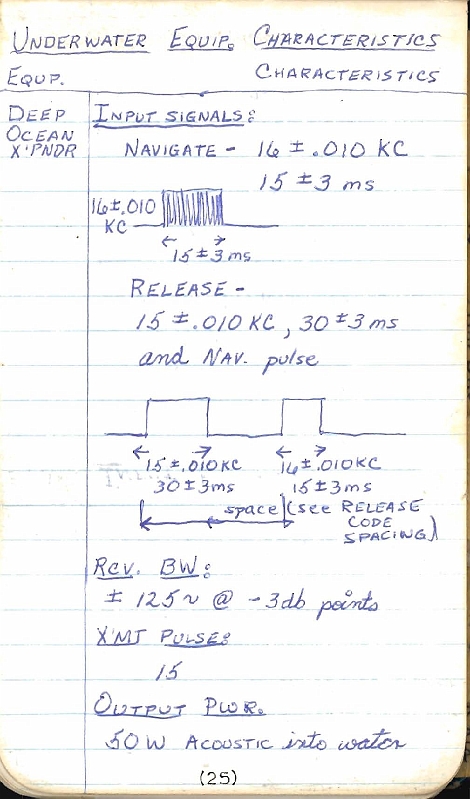 UNDERWATER EQUIP. CHARACTERISTICS
EQUP. CHARACTERISTICS
DEEP OCEAN X'PNDR
INPUT SIGNALS:
NAVIGATE - 16 ± .010 KC
15 ± 3 ms
16 ± .010 KC
15 ± 3 ms
RELEASE -
15 ± .010 KC, 30 ± 3 ms
and NAV. pulse
15 ± .010 KC 16 ± .010 KC
30 ± 3 ms 15 ± 3 ms
space (see RELEASE
CODE
SPACING)
RCV. BW:
± 125 ~ @ -3db points
X'MT PULSE:
15
OUTPUT PWR.
50 W ACOUSTIC into water
(25)